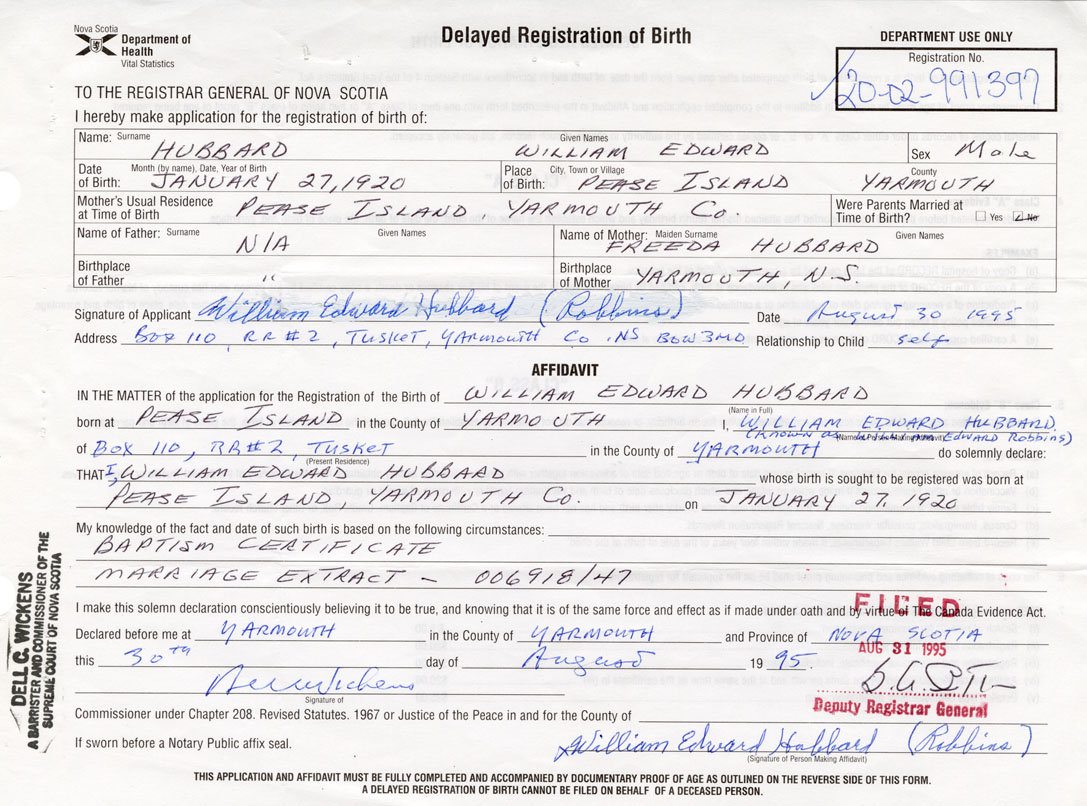 Nova Scotia
Department of
Health
Vital Statistics
Delayed Registration of Birth
DEPARTMENT USE ONLY
Registration No.
20-02-991397
TO THE REGISTRAR GENERAL OF NOVA SCOTIA
I hereby make application for the registration of birth of:
Name: Surname HUBBARD Given Names WILLIAM EDWARD Sex Male
Date of Birth: Month (by name), Date, Year of Birth JANUARY 27, 1920 Place of Birth: City, Town or Village PEASE ISLAND County YARMOUTH
Mother's Usual Residence at Time of Birth PEASE ISLAND, YARMOUTH Co. Were Parents Married at Time of Birth? Yes No
Name of Father: Surname N/A Given Names Name of Mother: Maiden Surname FREEDA HUBBARD Given Names
Birthplace of Father " Birthplace of Mother YARMOUTH, N.S.
Signature of Applicant William Edward Hubbard (Robbins) Date August 30 1995
Address Box 110, RR#2, TUSKET, YARMOUTH Co. NS BOW 3MO Relationship to Child self
AFFIDAVIT
IN THE MATTER of the application for the Registration of the Birth of WILLIAM EDWARD HUBBARD
(Name in Full)
born at PEASE ISLAND in the County of YARMOUTH I, WILLIAM EDWARD HUBBARD
(known as William Edward Robbins)
(Name of Person Making Affidavit)
of Box 110, RR#2, TUSKET in the County of YARMOUTH do solemnly declare:
(Present Residence)
THAT I, WILLIAM EDWARD HUBBARD whose birth is sought to be registered was born at
PEASE ISLAND, YARMOUTH Co. on JANUARY 27, 1920
My knowledge of the fact and date of such birth is based on the following circumstances:
BAPTISM CERTIFICATE
MARRIAGE EXTRACT - 006918/47
I make this solemn declaration conscientiously believing it to be true, and knowing that it is of the same force and effect as if made under oath and by virtue of The Canada Evidence Act.
FILED
Declared before me at YARMOUTH in the County of YARMOUTH and Province of NOVA SCOTIA
AUG 31 1995
this 30th day of August 1995.
Deputy Registrar General
Signature of
Commissioner under Chapter 208. Revised Statutes. 1967 or Justice of the Peace in and for the County of
If sworn before a Notary Public affix seal.
William Edward Hubbard (Robbins)
(Signature of Person Making Affidavit)
THIS APPLICATION AND AFFIDAVIT MUST BE FULLY COMPLETED AND ACCOMPANIED BY DOCUMENTARY PROOF OF AGE AS OUTLINED ON THE REVERSE SIDE OF THIS FORM.
A DELAYED REGISTRATION OF BIRTH CANNOT BE FILED ON BEHALF OF A DECEASED PERSON.
DELL C. WICKENS
A BARRISTER AND COMMISSIONER OF THE
SUPREME COURT OF NOVA SCOTIA